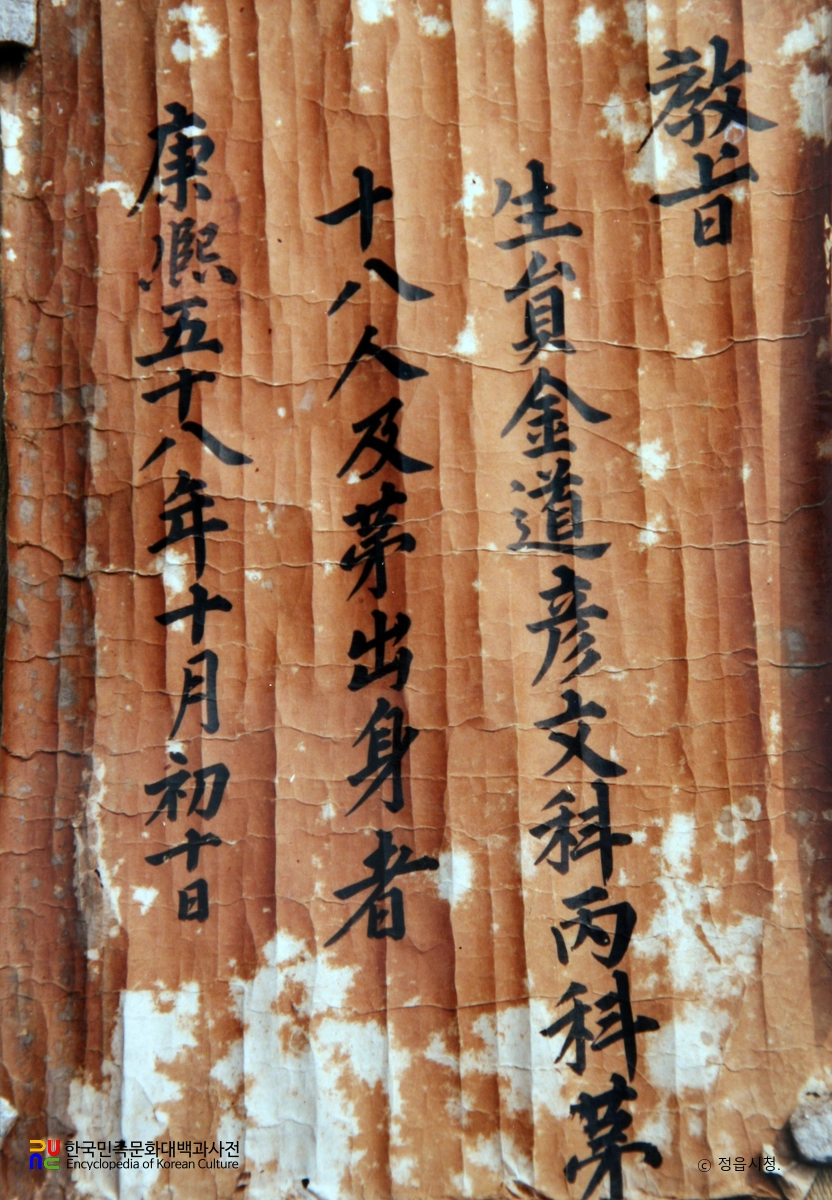 敎旨
生員金道彦文科丙科第
十八人及第出身者
康熙五十八年十月初十日
한국민족문화대백과사전
Encyclopedia of Korean Culture
ⓒ 정읍시청.